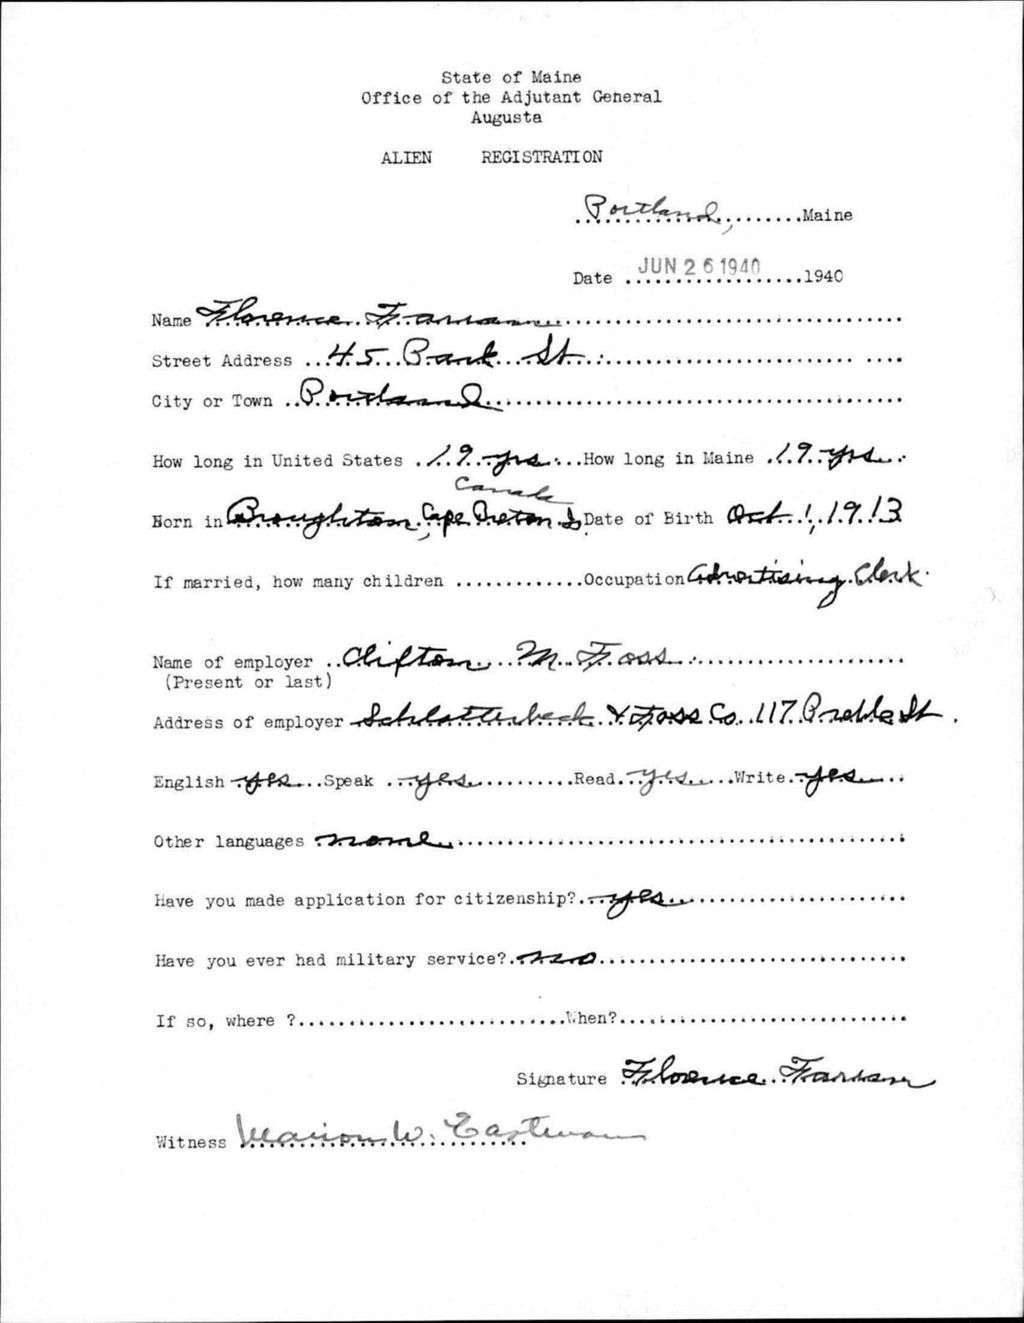 State of Maine
Office of the Adjutant General
Augusta
ALIEN REGISTRATION
Portland, Maine
Date JUN 26 1940 1940
Name Florence Farran
Street Address 45 Bank St.
City or Town Portland
How long in United States 19 yrs. How long in Maine 19 yrs.
Canada
Born in Broughton, Cape Breton I. Date of Birth Oct. 1, 1913
If married, how many children Occupation Advertising Clerk
Name of employer Clifton M. Foss
(Present or last)
Address of employer Schlotterbeck & Foss Co. 117 Preble St
English yes Speak yes Read yes Write yes
Other languages none
Have you made application for citizenship? yes
Have you ever had military service? no
If so, where? When?
Signature Florence
Witness Marion W. Eastman